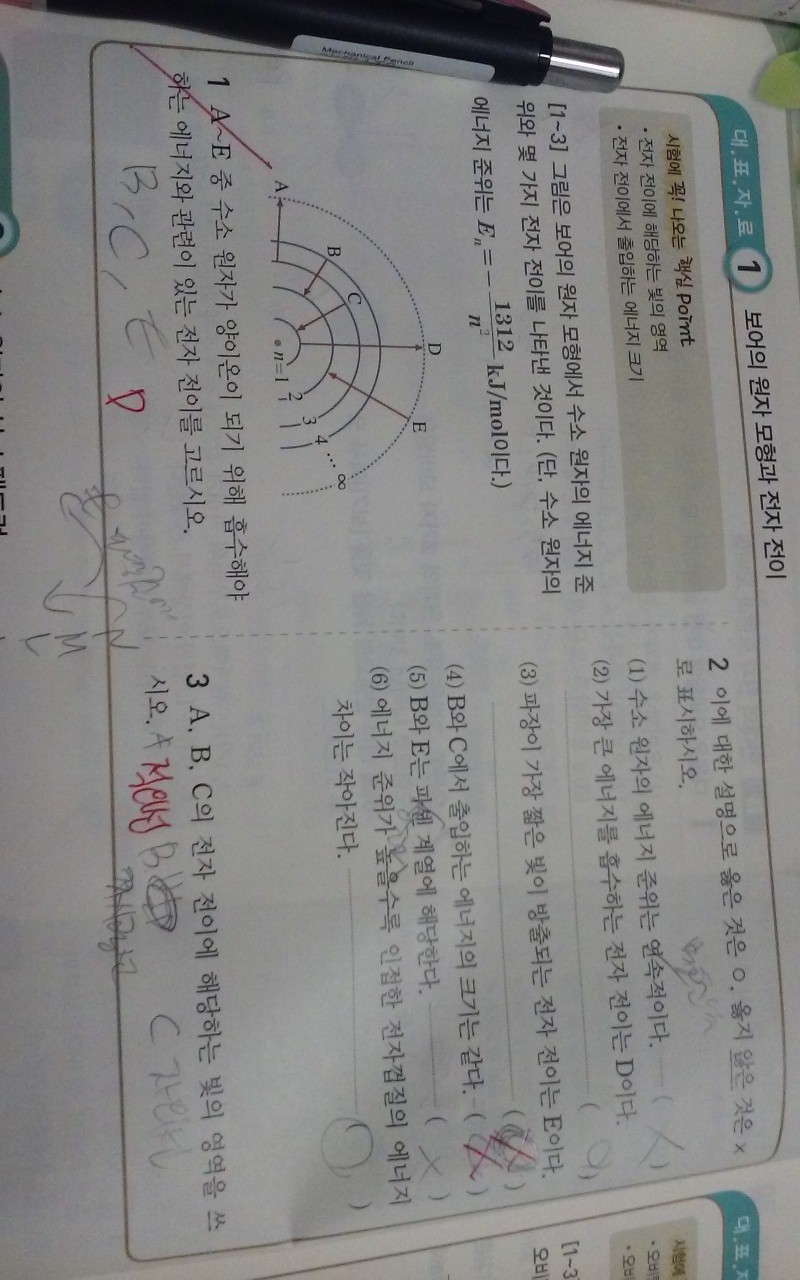 Mechanical Pencil
대·표·자·료 1 보어의 원자 모형과 전자 전이
시험에 꼭! 나오는 핵심 Point
• 전자 전이에 해당하는 빛의 영역
• 전자 전이에서 출입하는 에너지 크기
[1~3] 그림은 보어의 원자 모형에서 수소 원자의 에너지 준
위와 몇 가지 전자 전이를 나타낸 것이다. (단, 수소 원자의
에너지 준위는 Eₙ=－1312/n² kJ/mol이다.)
A B C D E
n=1 2 3 4 … ∞
1 A~E 중 수소 원자가 양이온이 되기 위해 흡수해야
하는 에너지와 관련이 있는 전자 전이를 고르시오.
B, C, E D
N
M
L
2 이에 대한 설명으로 옳은 것은 ○, 옳지 않은 것은 ×
로 표시하시오.
(1) 수소 원자의 에너지 준위는 연속적이다. ( X )
(2) 가장 큰 에너지를 흡수하는 전자 전이는 D이다.
( O )
(3) 파장이 가장 짧은 빛이 방출되는 전자 전이는 E이다.
( X )
(4) B와 C에서 출입하는 에너지의 크기는 같다. ( X )
(5) B와 E는 파셴 계열에 해당한다. ( X )
(6) 에너지 준위가 높을수록 인접한 전자껍질의 에너지
차이는 작아진다. ( O )
3 A, B, C의 전자 전이에 해당하는 빛의 영역을 쓰
시오. A 적외선 B C 자외선
대·표·자
시험에
• 오비
• 오비
[1~3
오비